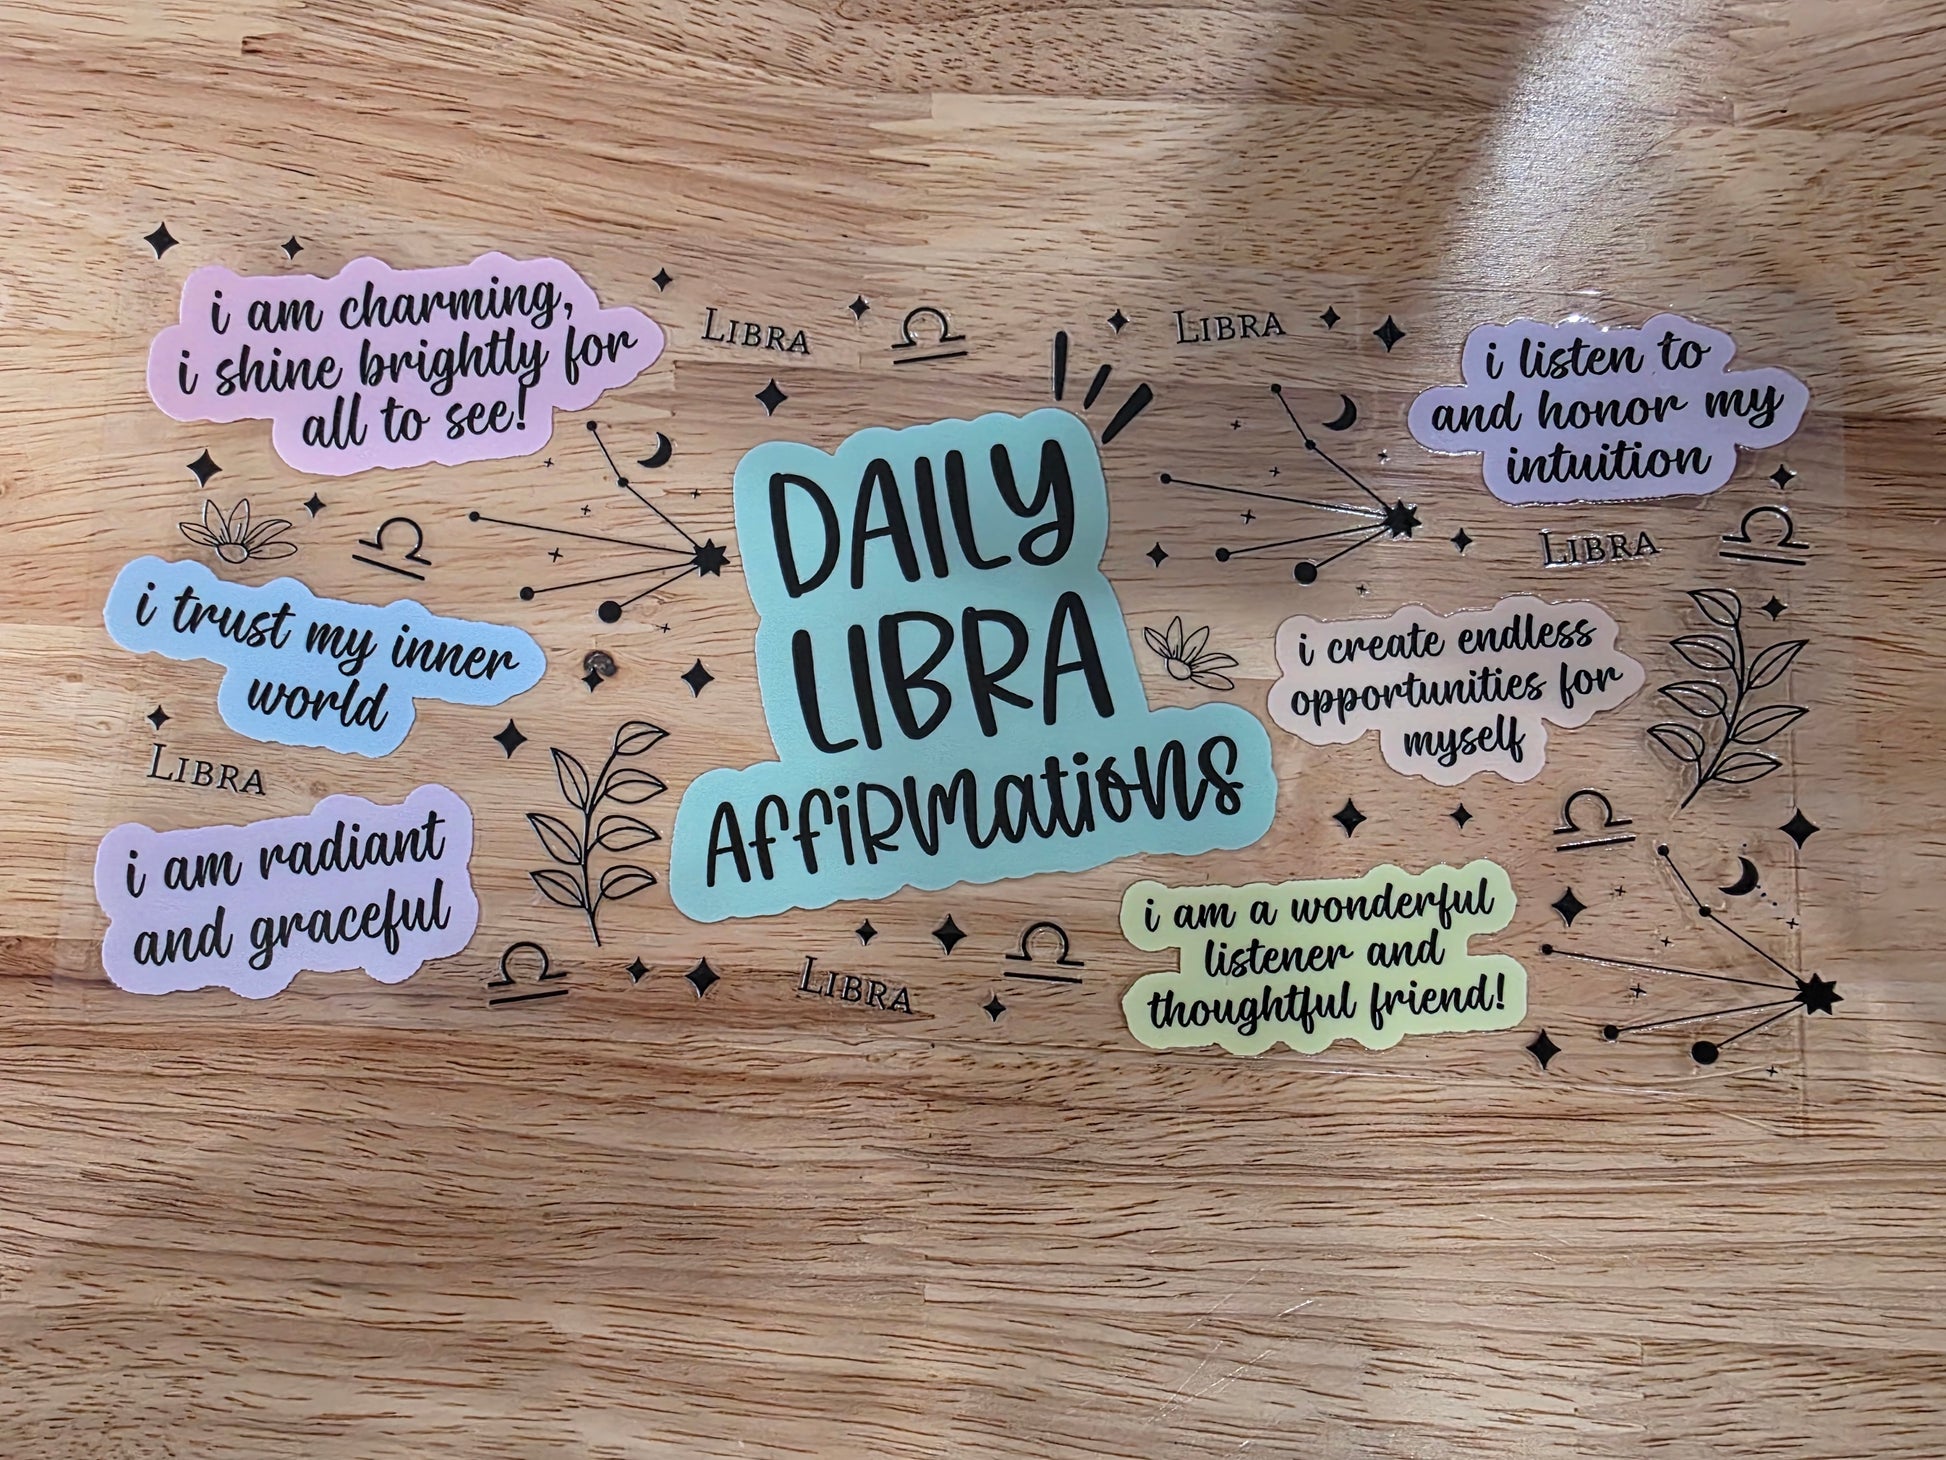 i am charming,
i shine brightly for
all to see!
LIBRA
LIBRA
i listen to
and honor my
intuition
DAILY
LIBRA
AFFIRMATIONS
LIBRA
i trust my inner
world
i create endless
opportunities for
myself
LIBRA
i am radiant
and graceful
i am a wonderful
listener and
thoughtful friend!
LIBRA